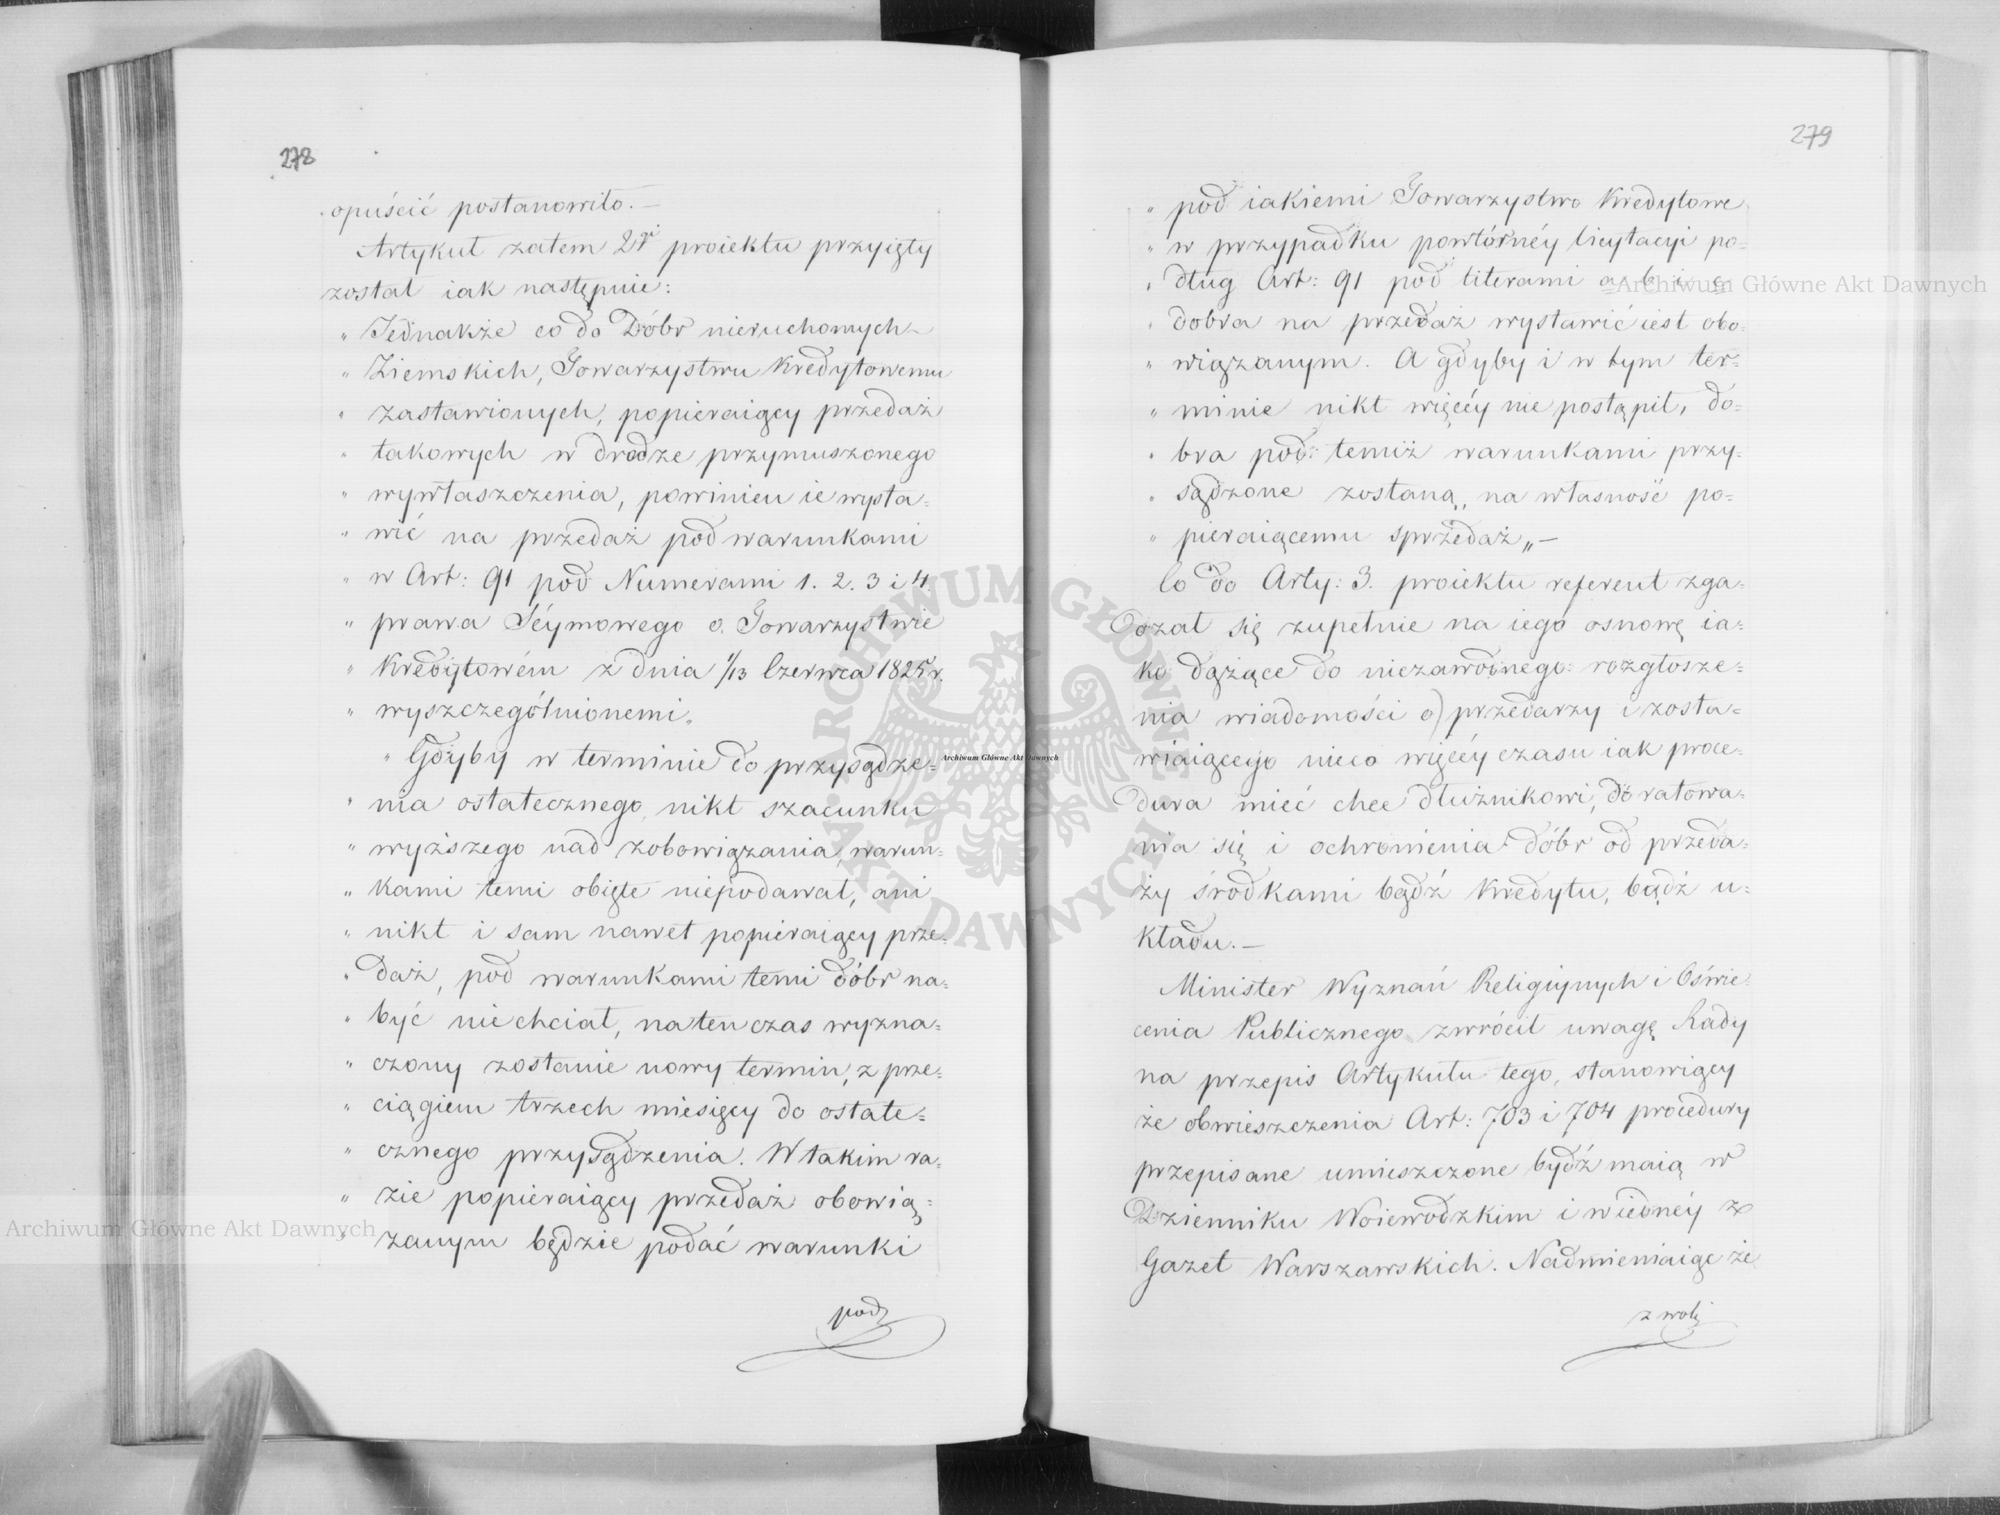 278
opuścić postanowiło. —
Artykuł zatem 2gi proiektu przyięty
został iak następnie:
„ Jednakże co do Dóbr nieruchomych
„ Ziemskich, Towarzystwu Kredytowemu
„ zastawionych, popieraiący przedaż
„ takowych w drodze przymuszonego
„ wywłaszczenia, powinien ie wysta=
„ wić na przedaż pod warunkami
„ w Art: 91 pod Numerami 1. 2. 3 i 4.
„ prawa Séymowego o Towarzystwie
„ Kredytowém z dnia 1/13 Czerwca 1825 r.
„ wyszczególnionemi.
„ Gdyby w terminie do przysądze=
„ nia ostatecznego nikt szacunku
„ wyższego nad zobowiązania warun=
„ kami temi obięte niepodawał, ani
„ nikt i sam nawet popieraiący prze=
„ daż, pod warunkami temi dóbr na=
„ być nie chciał, na ten czas wyzna=
„ czony zostanie nowy termin, z prze=
„ ciągiem trzech miesięcy do ostate=
„ cznego przysądzenia. W takim ra=
„ zie popieraiący przedaż obowią=
„ zanym będzie podać warunki
pod
279
„ pod iakiemi Towarzystwo Kredytowe
„ w przypadku powtórnéy licytacyi po=
„ dług Art: 91 pod literami a b i c
„ dobra na przedaż wystawić iest obo=
„ wiązanym. A gdyby i w tym ter=
„ minie nikt więcéy nie postąpił, do=
„ bra pod temiż warunkami przy=
„ sądzone zostaną, na własność po=
„ pieraiącemu sprzedaż„ —
Co do Arty: 3. proiektu referent zga=
dzał się zupełnie na iego osnowę ia=
ko dążące do niezawodnego rozgłosze=
nia wiadomości o przedarzy i zosta=
wiaiącego nieco więcéy czasu iak proce=
dura mieć chce dłużnikowi, do ratowa=
nia się i ochronienia dóbr od przeda=
ży środkami bądź Kredytu, bądź u=
kładu. —
Minister Wyznań Religiynych i Oświe=
cenia Publicznego zwrócił uwagę Rady
na przepis Artykułu tego, stanowiący
że obwieszczenia Art: 703 i 704 procedury
przepisane umieszczone bydź maią w
Dzienniku Woiewodzkim i w iednéy z
Gazet Warszawskich. Nadmieniaiąc że
z woli
Archiwum Główne Akt Dawnych
Archiwum Główne Akt Dawnych
Archiwum Główne Akt Dawnych
ARCHIWUM GŁÓWNE AKT DAWNYCH